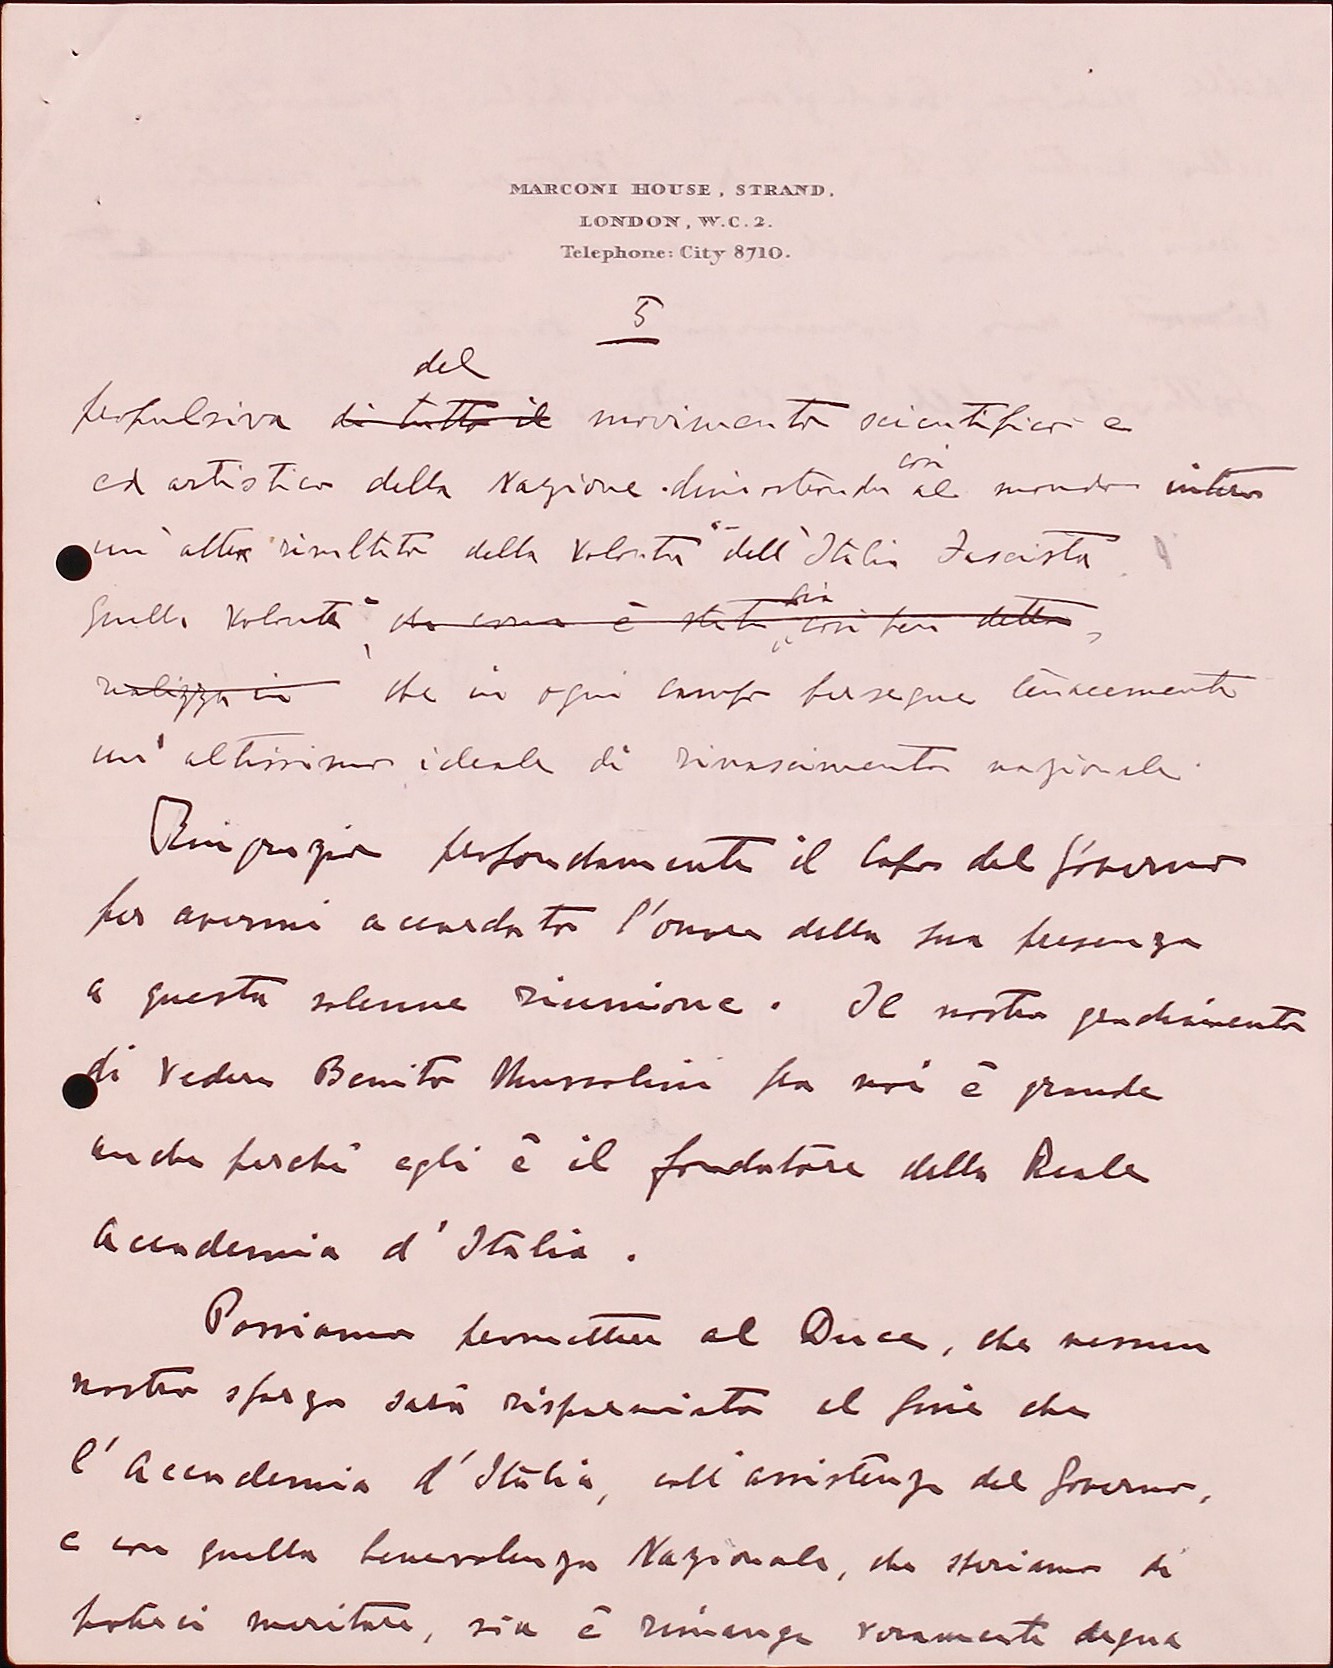 MARCONI HOUSE, STRAND.
LONDON, W.C.2.
Telephone: City 8710.
5
del
propulsiva di tutto il movimento scientifico e
ed artistico della Nazione dimostrando così al mondo intero
un'altro risultato della volontà "dell'Italia Fascista
Quella volontà" che come è stato già così ben detto,
realizza in che in ogni campo persegue tenacemente
un'altissimo ideale di rinascimento nazionale.
Ringrazio profondamente il Capo del Governo
per avermi accordato l'onore della sua presenza
a questa solenne riunione. Il nostro gradimento
di vedere Benito Mussolini fra noi è grande
anche perchè egli è il fondatore della Reale
Accademia d'Italia.
Possiamo permettere al Duce, che nessun
nostro sforzo sarà risparmiato al fine che
l'Accademia d'Italia, coll'assistenza del Governo,
e con quella benevolenza Nazionale, che speriamo di
poterci meritare, sia e rimanga veramente degna